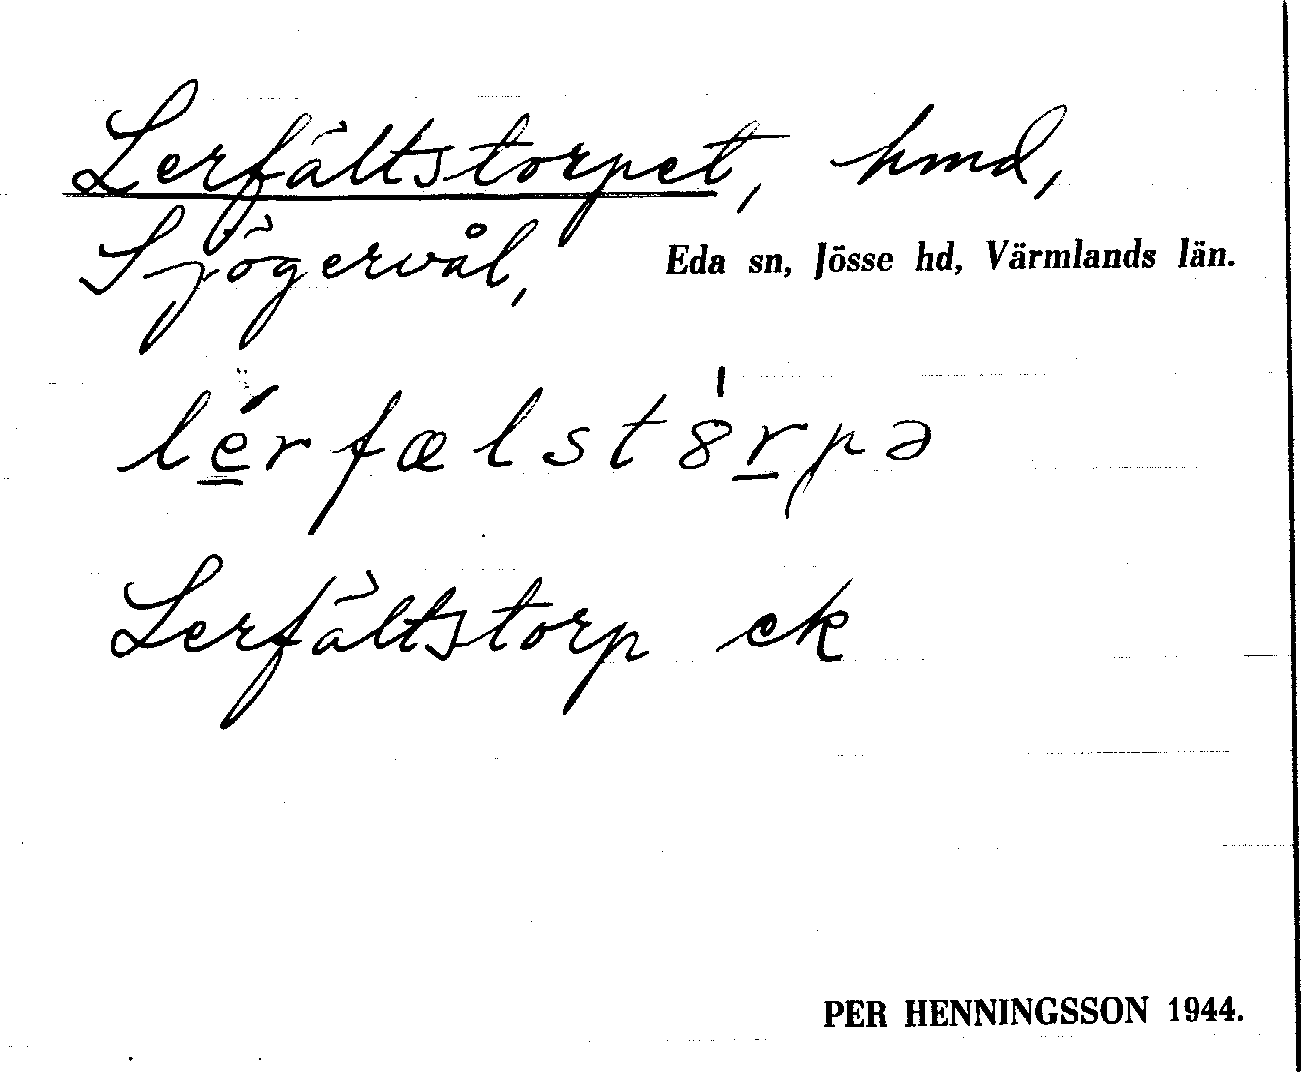 Lerfältstorpet, hmd,
Sjögervål, Eda sn, Jösse hd, Värmlands län.
lé̲rfælst8̍r̲pə
Lerfältstorp ek
PER HENNINGSSON 1944.